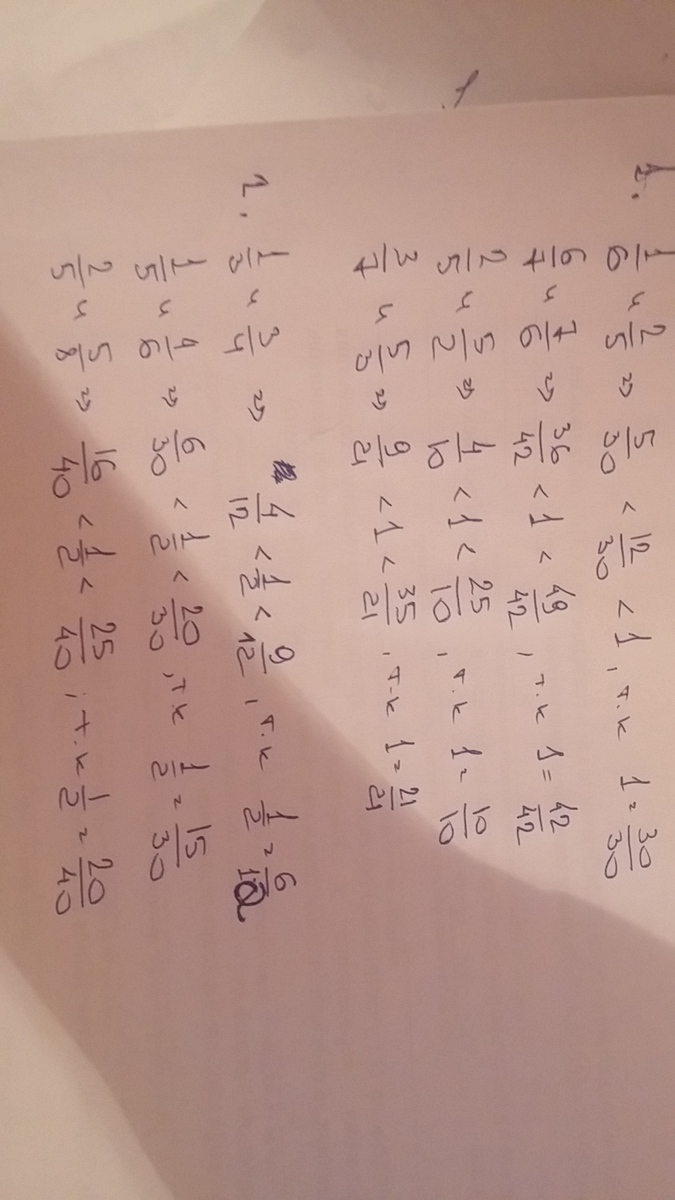 1.
1/6 и 2/5 => 5/30 < 12/30 < 1, т.к 1 = 30/30
6/7 и 7/6 => 36/42 < 1 < 49/42, т.к 1 = 42/42
2/5 и 5/2 => 4/10 < 1 < 25/10, т.к 1 = 10/10
3/7 и 5/3 => 9/21 < 1 < 35/21, т.к 1 = 21/21
2.
1/3 и 3/4 => 4/12 < 1/2 < 9/12, т.к 1/2 = 6/12
1/5 и 4/6 => 6/30 < 1/2 < 20/30, т.к 1/2 = 15/30
2/5 и 5/8 => 16/40 < 1/2 < 25/40; т.к 1/2 = 20/40